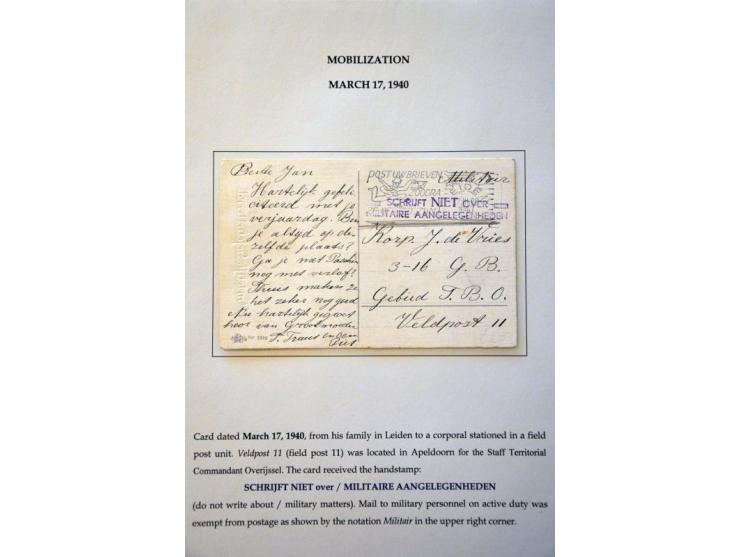 MOBILIZATION
MARCH 17, 1940
Beste Jan
Hartelijk gefeli
citeerd met je
verjaardag. Ben
je altyd op de-
zelfde plaats?
Ga je met Paschen
nog met verlof?
Truus maken ze
het zeker nog goed
Nu hartelijk gegroet
hoor van Grootmoeder
T. Truus en Oom
Piet
POST UW BRIEVEN
ZOODRA
Militair
SCHRIJFT NIET OVER
MILITAIRE AANGELEGENHEDEN
Korp. J. de Vries
3-16 G. B.
Gebied T. B. O.
Veldpost 11
Card dated March 17, 1940, from his family in Leiden to a corporal stationed in a field
post unit. Veldpost 11 (field post 11) was located in Apeldoorn for the Staff Territorial
Commandant Overijssel. The card received the handstamp:
SCHRIJFT NIET over / MILITAIRE AANGELEGENHEDEN
(do not write about / military matters). Mail to military personnel on active duty was
exempt from postage as shown by the notation Militair in the upper right corner.